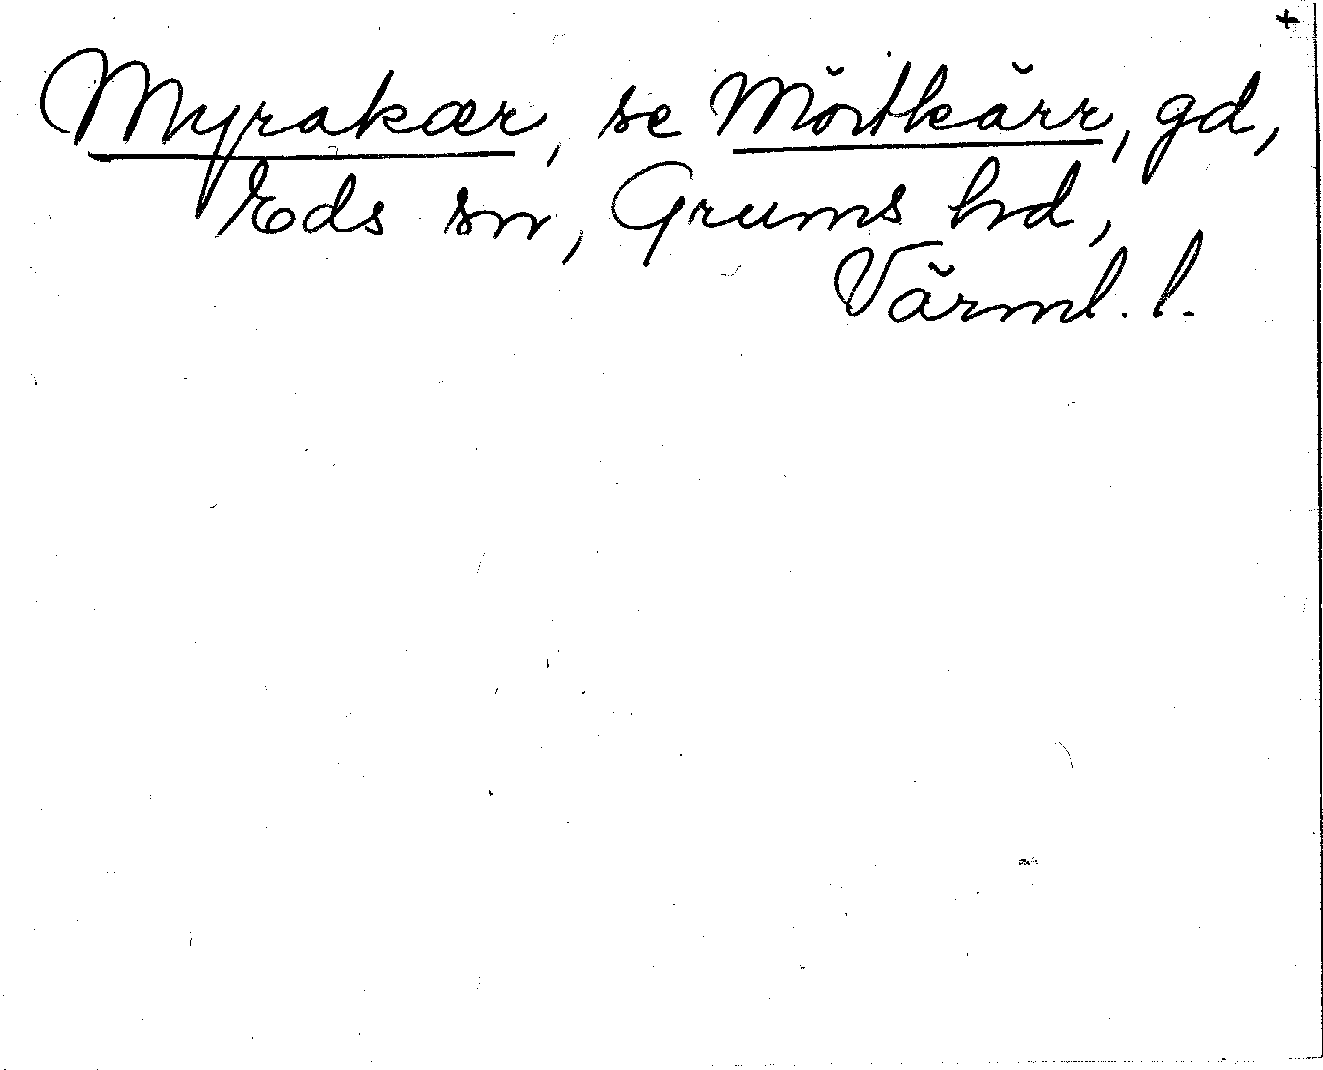 +
Myrakær, se Mörtkärr, gd,
Eds sn, Grums hd,
Värml. l.